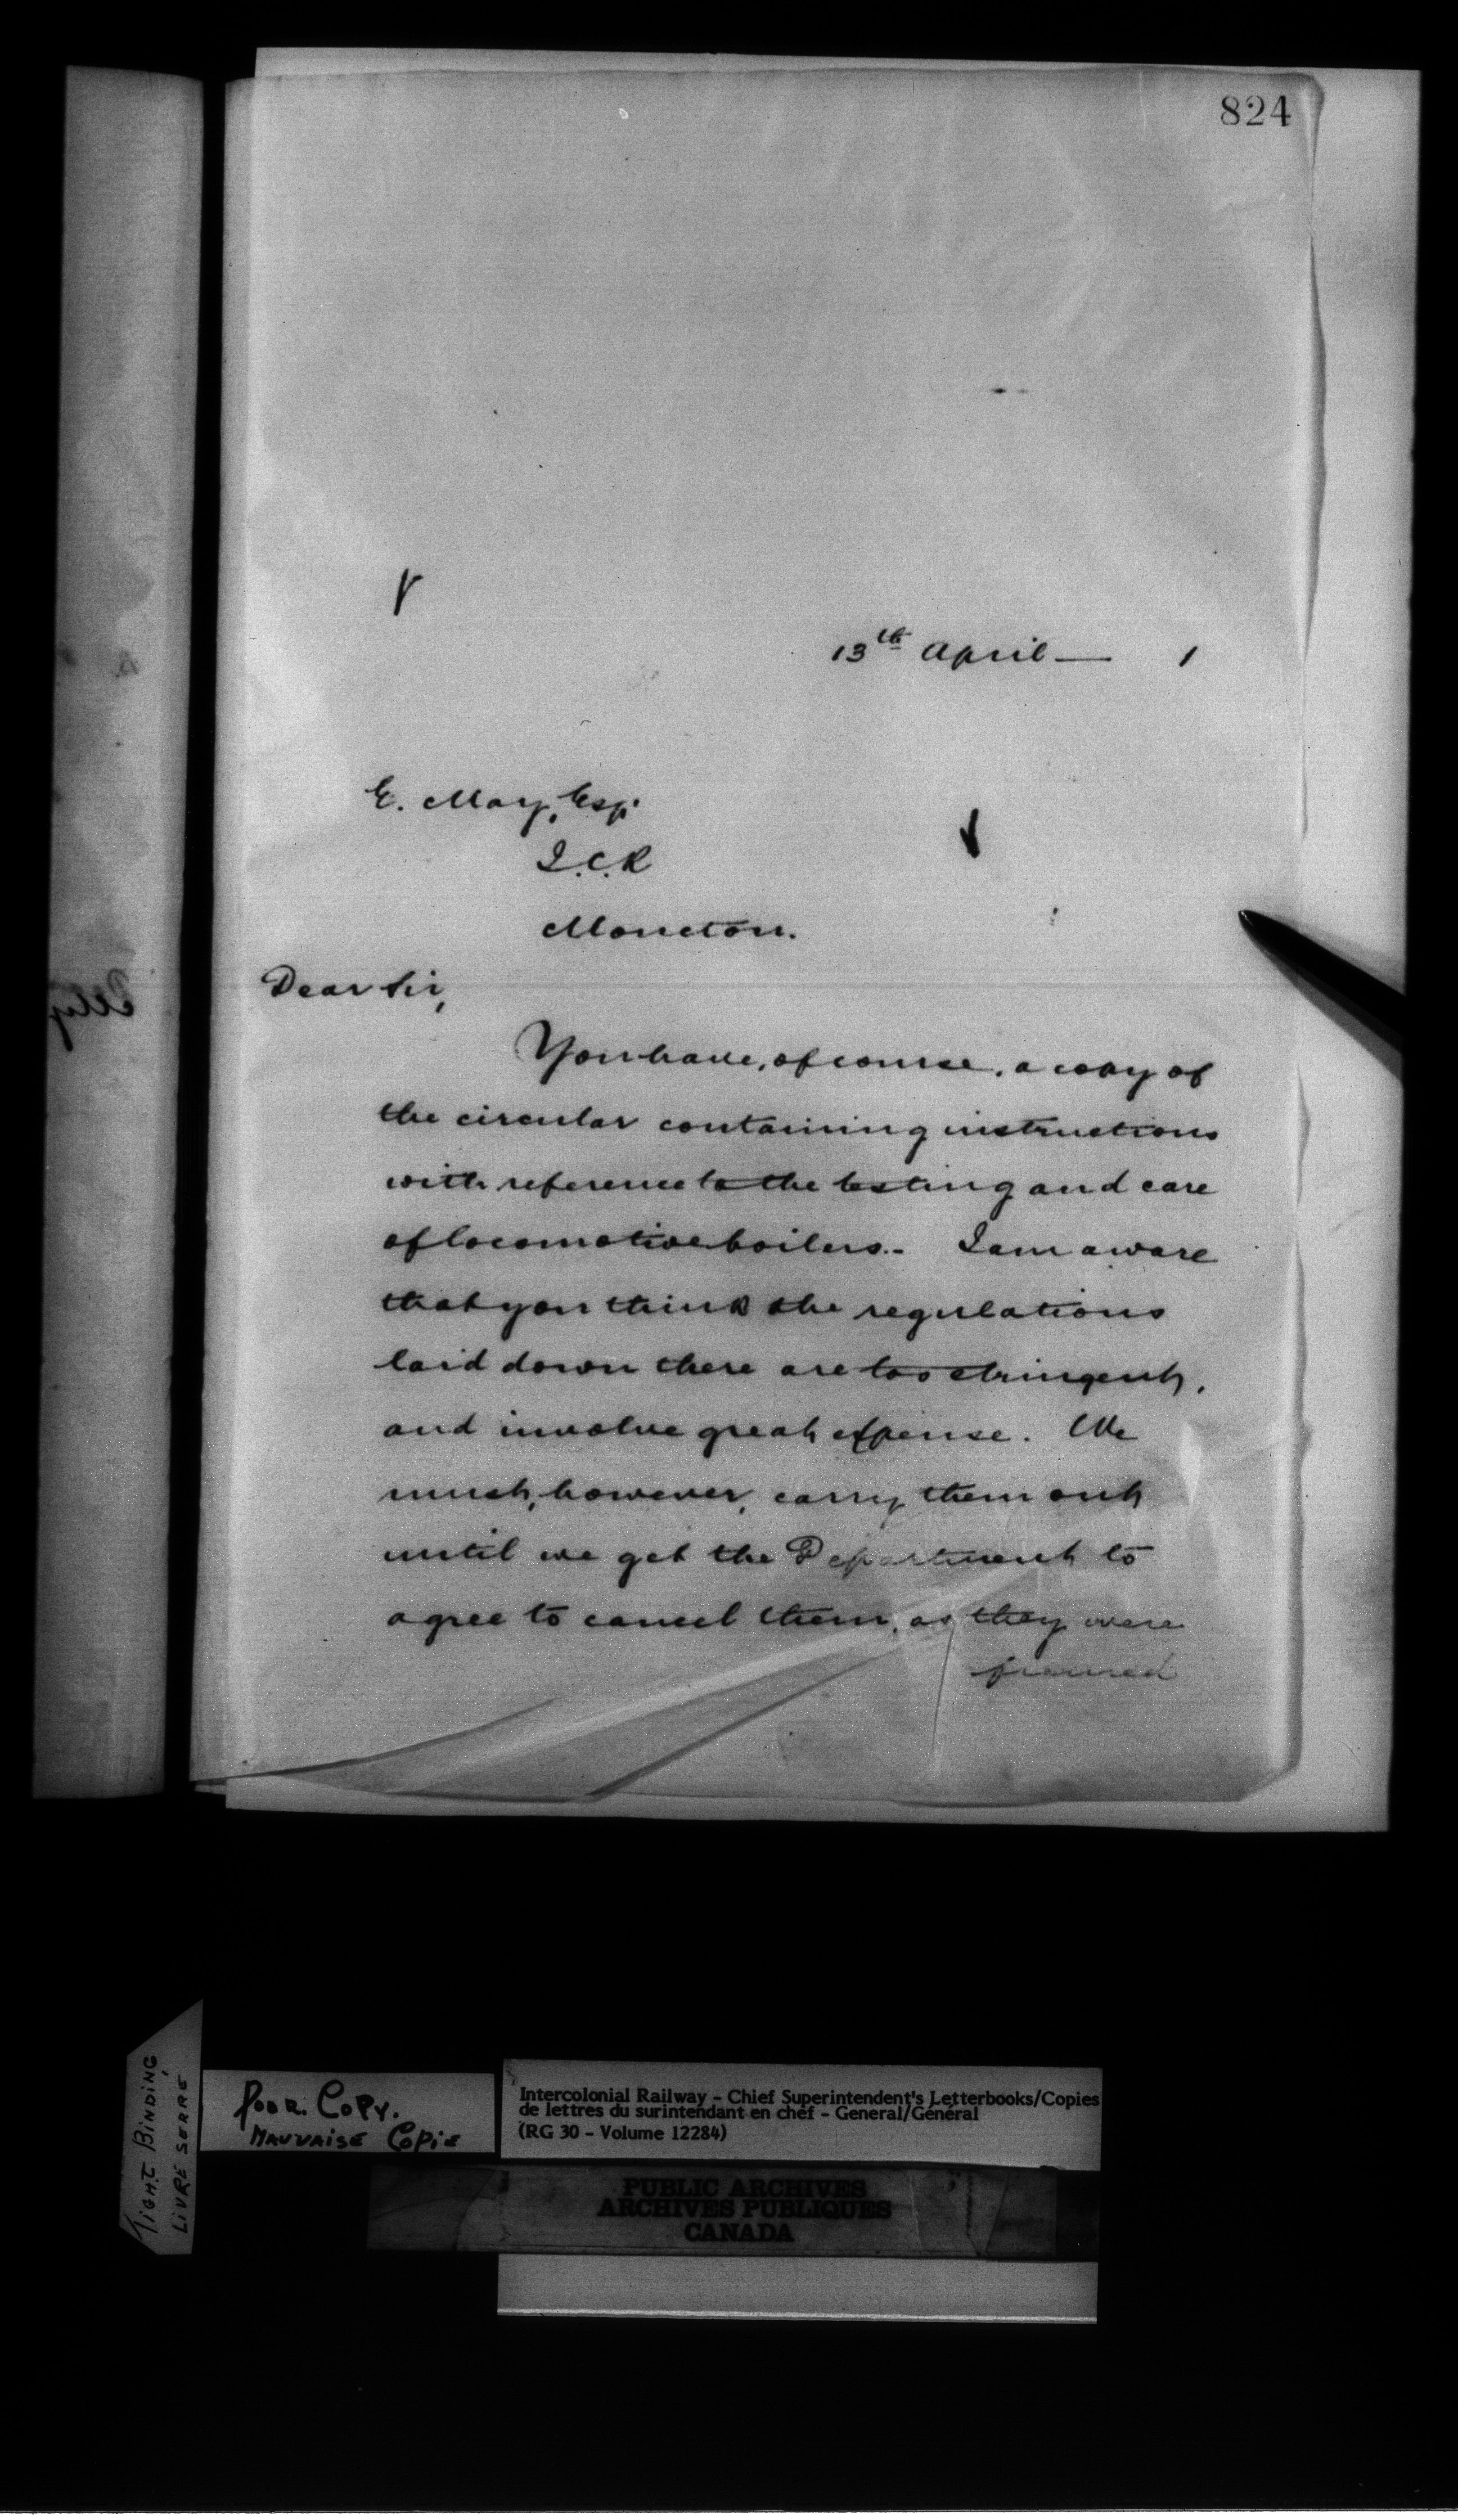 824
13th April — 1
E. May, Esq.
I.C.R
Moncton.
Dear Sir,
You have, of course, a copy of
the circular containing instructions
with reference to the testing and care
of locomotive boilers. - I am aware
that you think the regulations
laid down there are too stringent,
and involve great expense. We
must, however, carry them out
until we get the Department to
agree to cancel them, as they were
framed
TIGHT BINDING
LIVRE SERRÉ
POOR COPY.
MAUVAISE COPIE
Intercolonial Railway - Chief Superintendent's Letterbooks/Copies
de lettres du surintendant en chef - General/Général
(RG 30 - Volume 12284)
PUBLIC ARCHIVES
ARCHIVES PUBLIQUES
CANADA